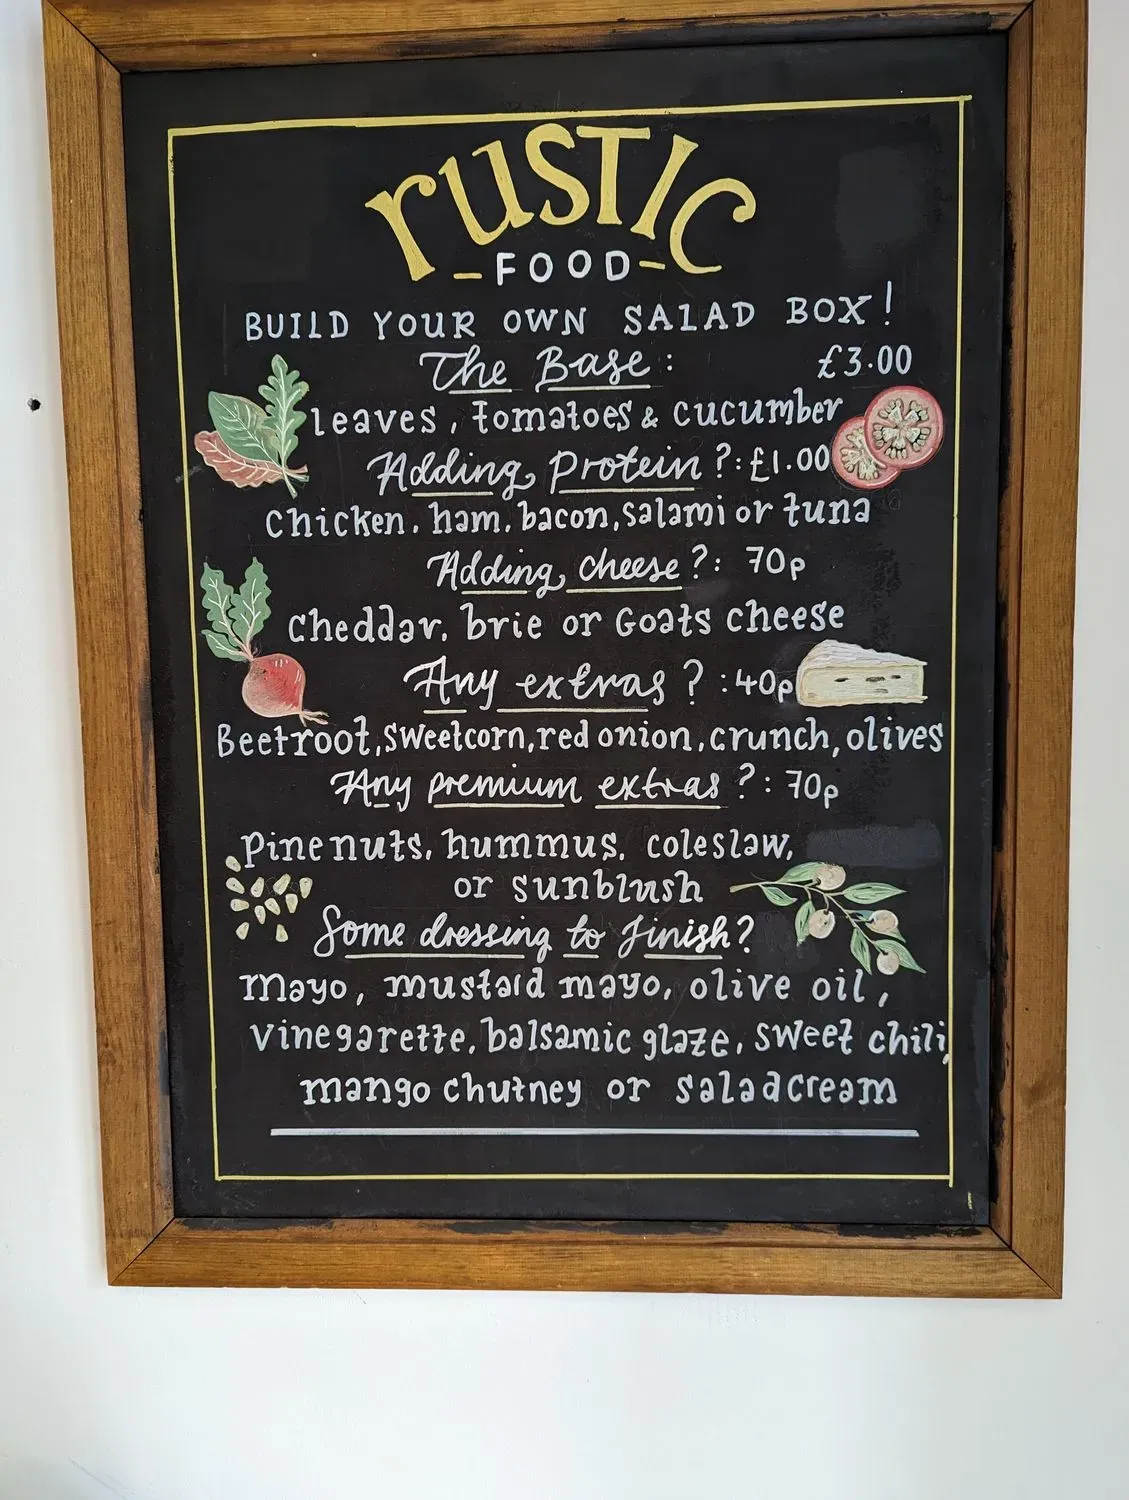 rustic
-FOOD-
BUILD YOUR OWN SALAD BOX!
The Base: £3.00
leaves, tomatoes & cucumber
Adding Protein?: £1.00
Chicken, ham, bacon, salami or tuna
Adding cheese?: 70p
Cheddar, brie or Goats cheese
Any extras?: 40p
Beetroot, sweetcorn, red onion, crunch, olives
Any premium extras?: 70p
Pinenuts, hummus, coleslaw,
or sunblush
Some dressing to finish?
Mayo, mustard mayo, olive oil,
vinegarette, balsamic glaze, sweet chili,
mango chutney or saladcream